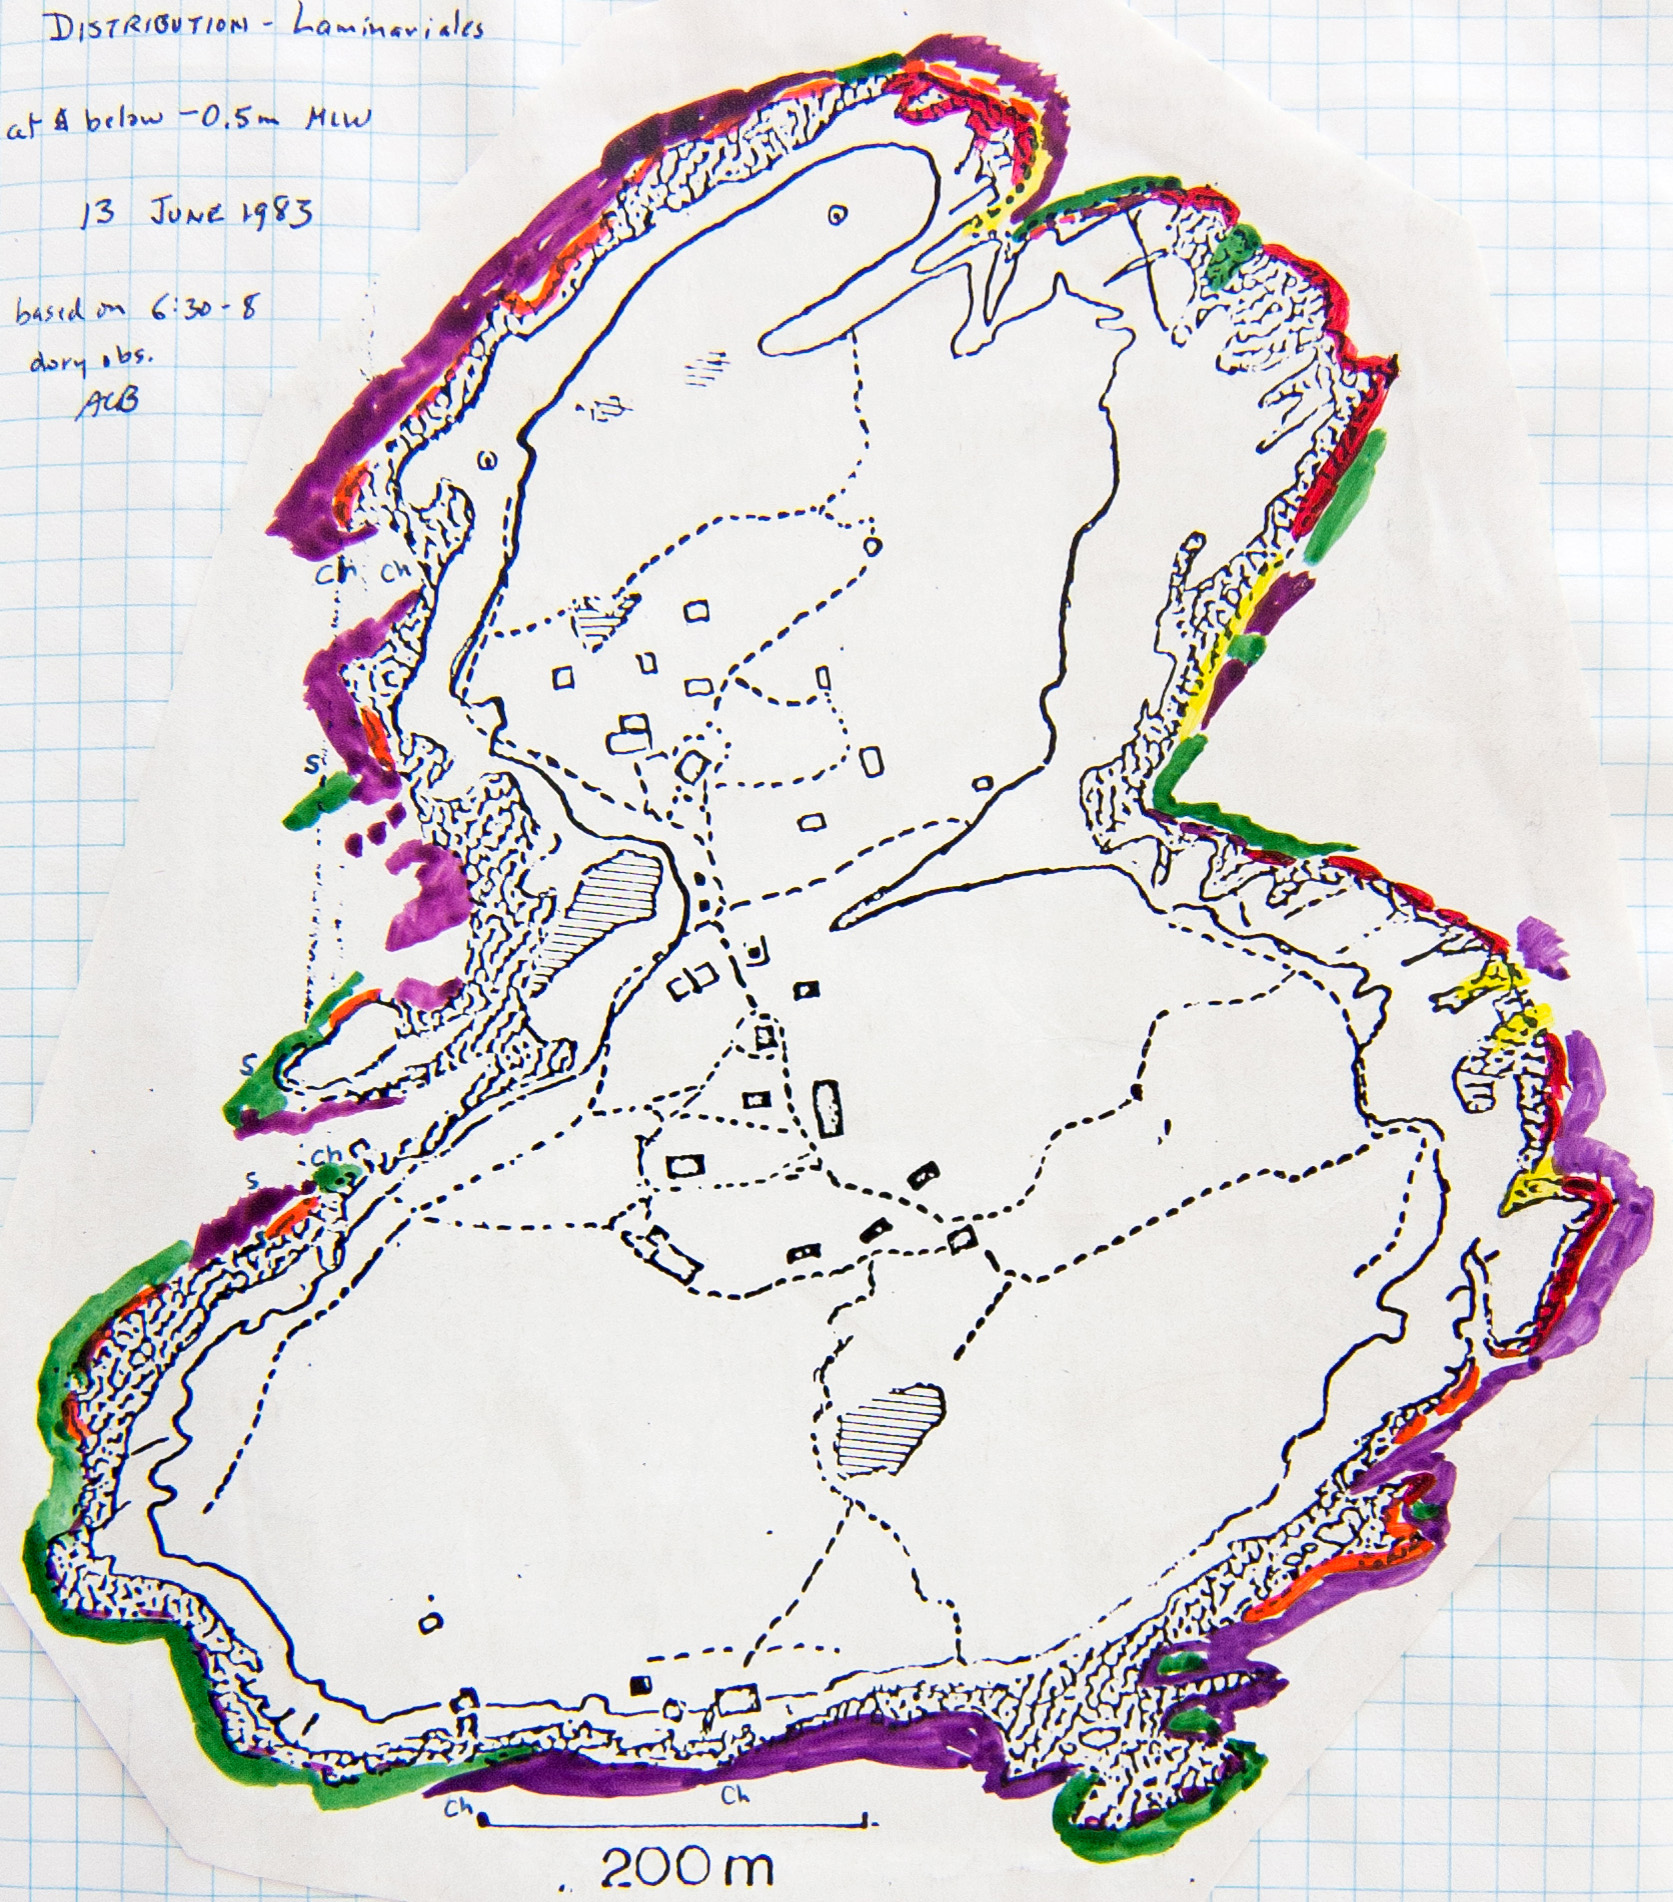 DISTRIBUTION - Laminariales
at & below -0.5m MLW
13 JUNE 1983
based on 6:30-8
dory obs.
ACB
Ch Ch
S
S
Ch
S
Ch
Ch
200 m